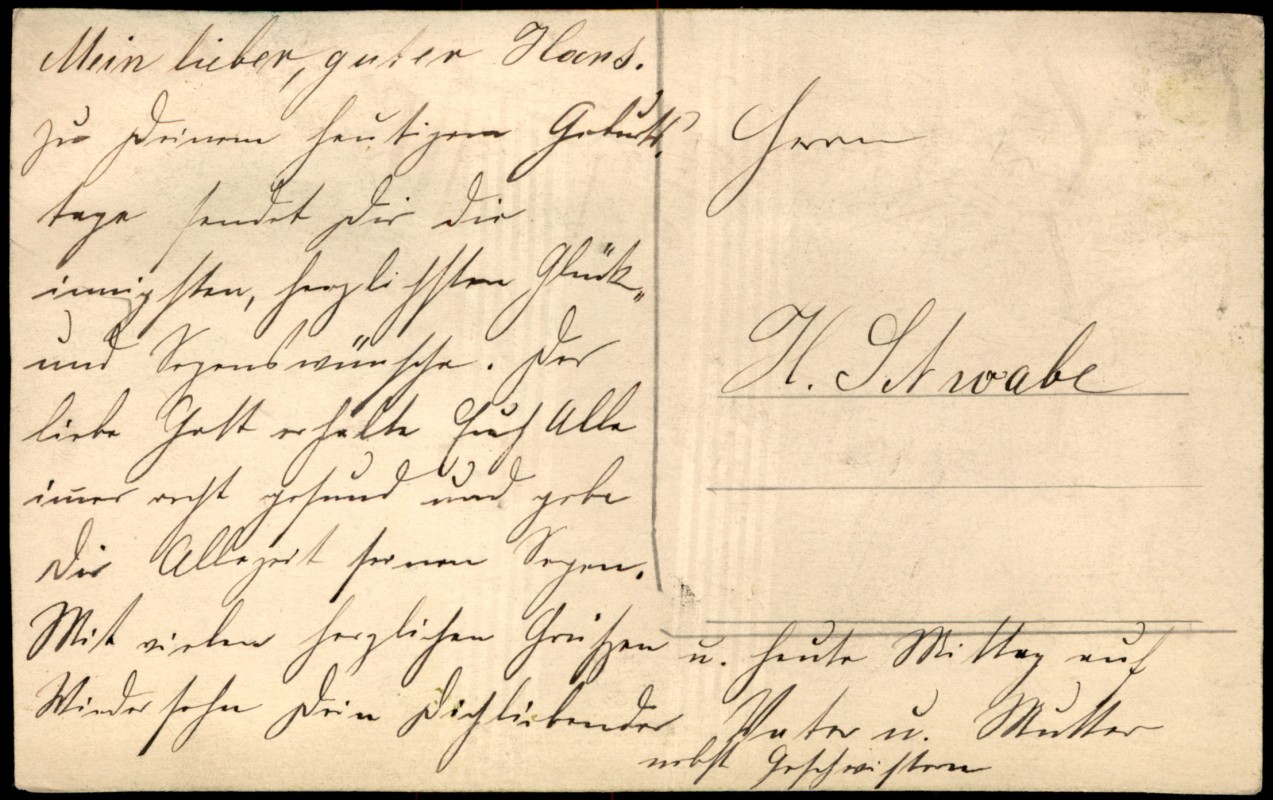 Mein lieber, guter Hans.
Zu Deinem heutigem Geburts-
tage sendet Dir die
innigsten, herzlichsten Glück-
und Segenswünsche. Der
liebe Gott erhalte Euch Alle
im̅er recht gesund und gebe
Dir Allezeit seinen Segen.
Mit vielen herzlichen Grüßen
u. heute Mittag auf
Wiedersehn Dein Dichliebender
Vater u. Mutter
nebst Geschwistern
Herrn
H. Schwabe